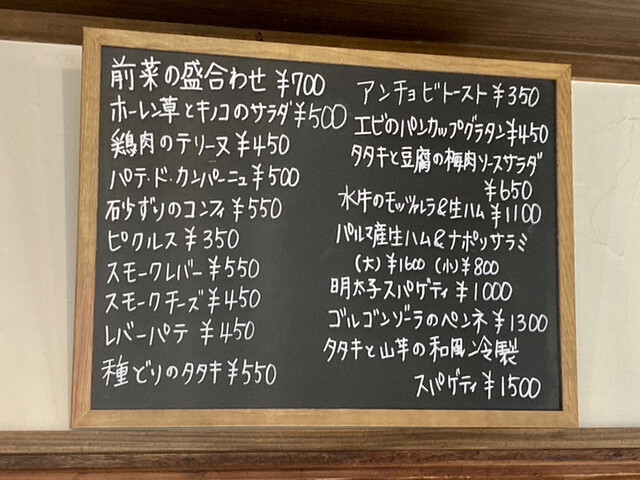 前菜の盛合わせ ¥700
ホーレン草とキノコのサラダ¥500
鶏肉のテリーヌ¥450
パテ・ド・カンパーニュ¥500
砂ずりのコンフィ¥550
ピクルス¥350
スモークレバー¥550
スモークチーズ¥450
レバーパテ ¥450
種どりのタタキ¥550
アンチョビトースト¥350
エビのパンカップグラタン¥450
タタキと豆腐の梅肉ソースサラダ
¥650
水牛のモッツァレラ&生ハム¥1100
パルマ産生ハム&ナポリサラミ
(大)¥1600 (小)¥800
明太子スパゲティ¥1000
ゴルゴンゾーラのペンネ¥1300
タタキと山芋の和風冷製
スパゲティ¥1500